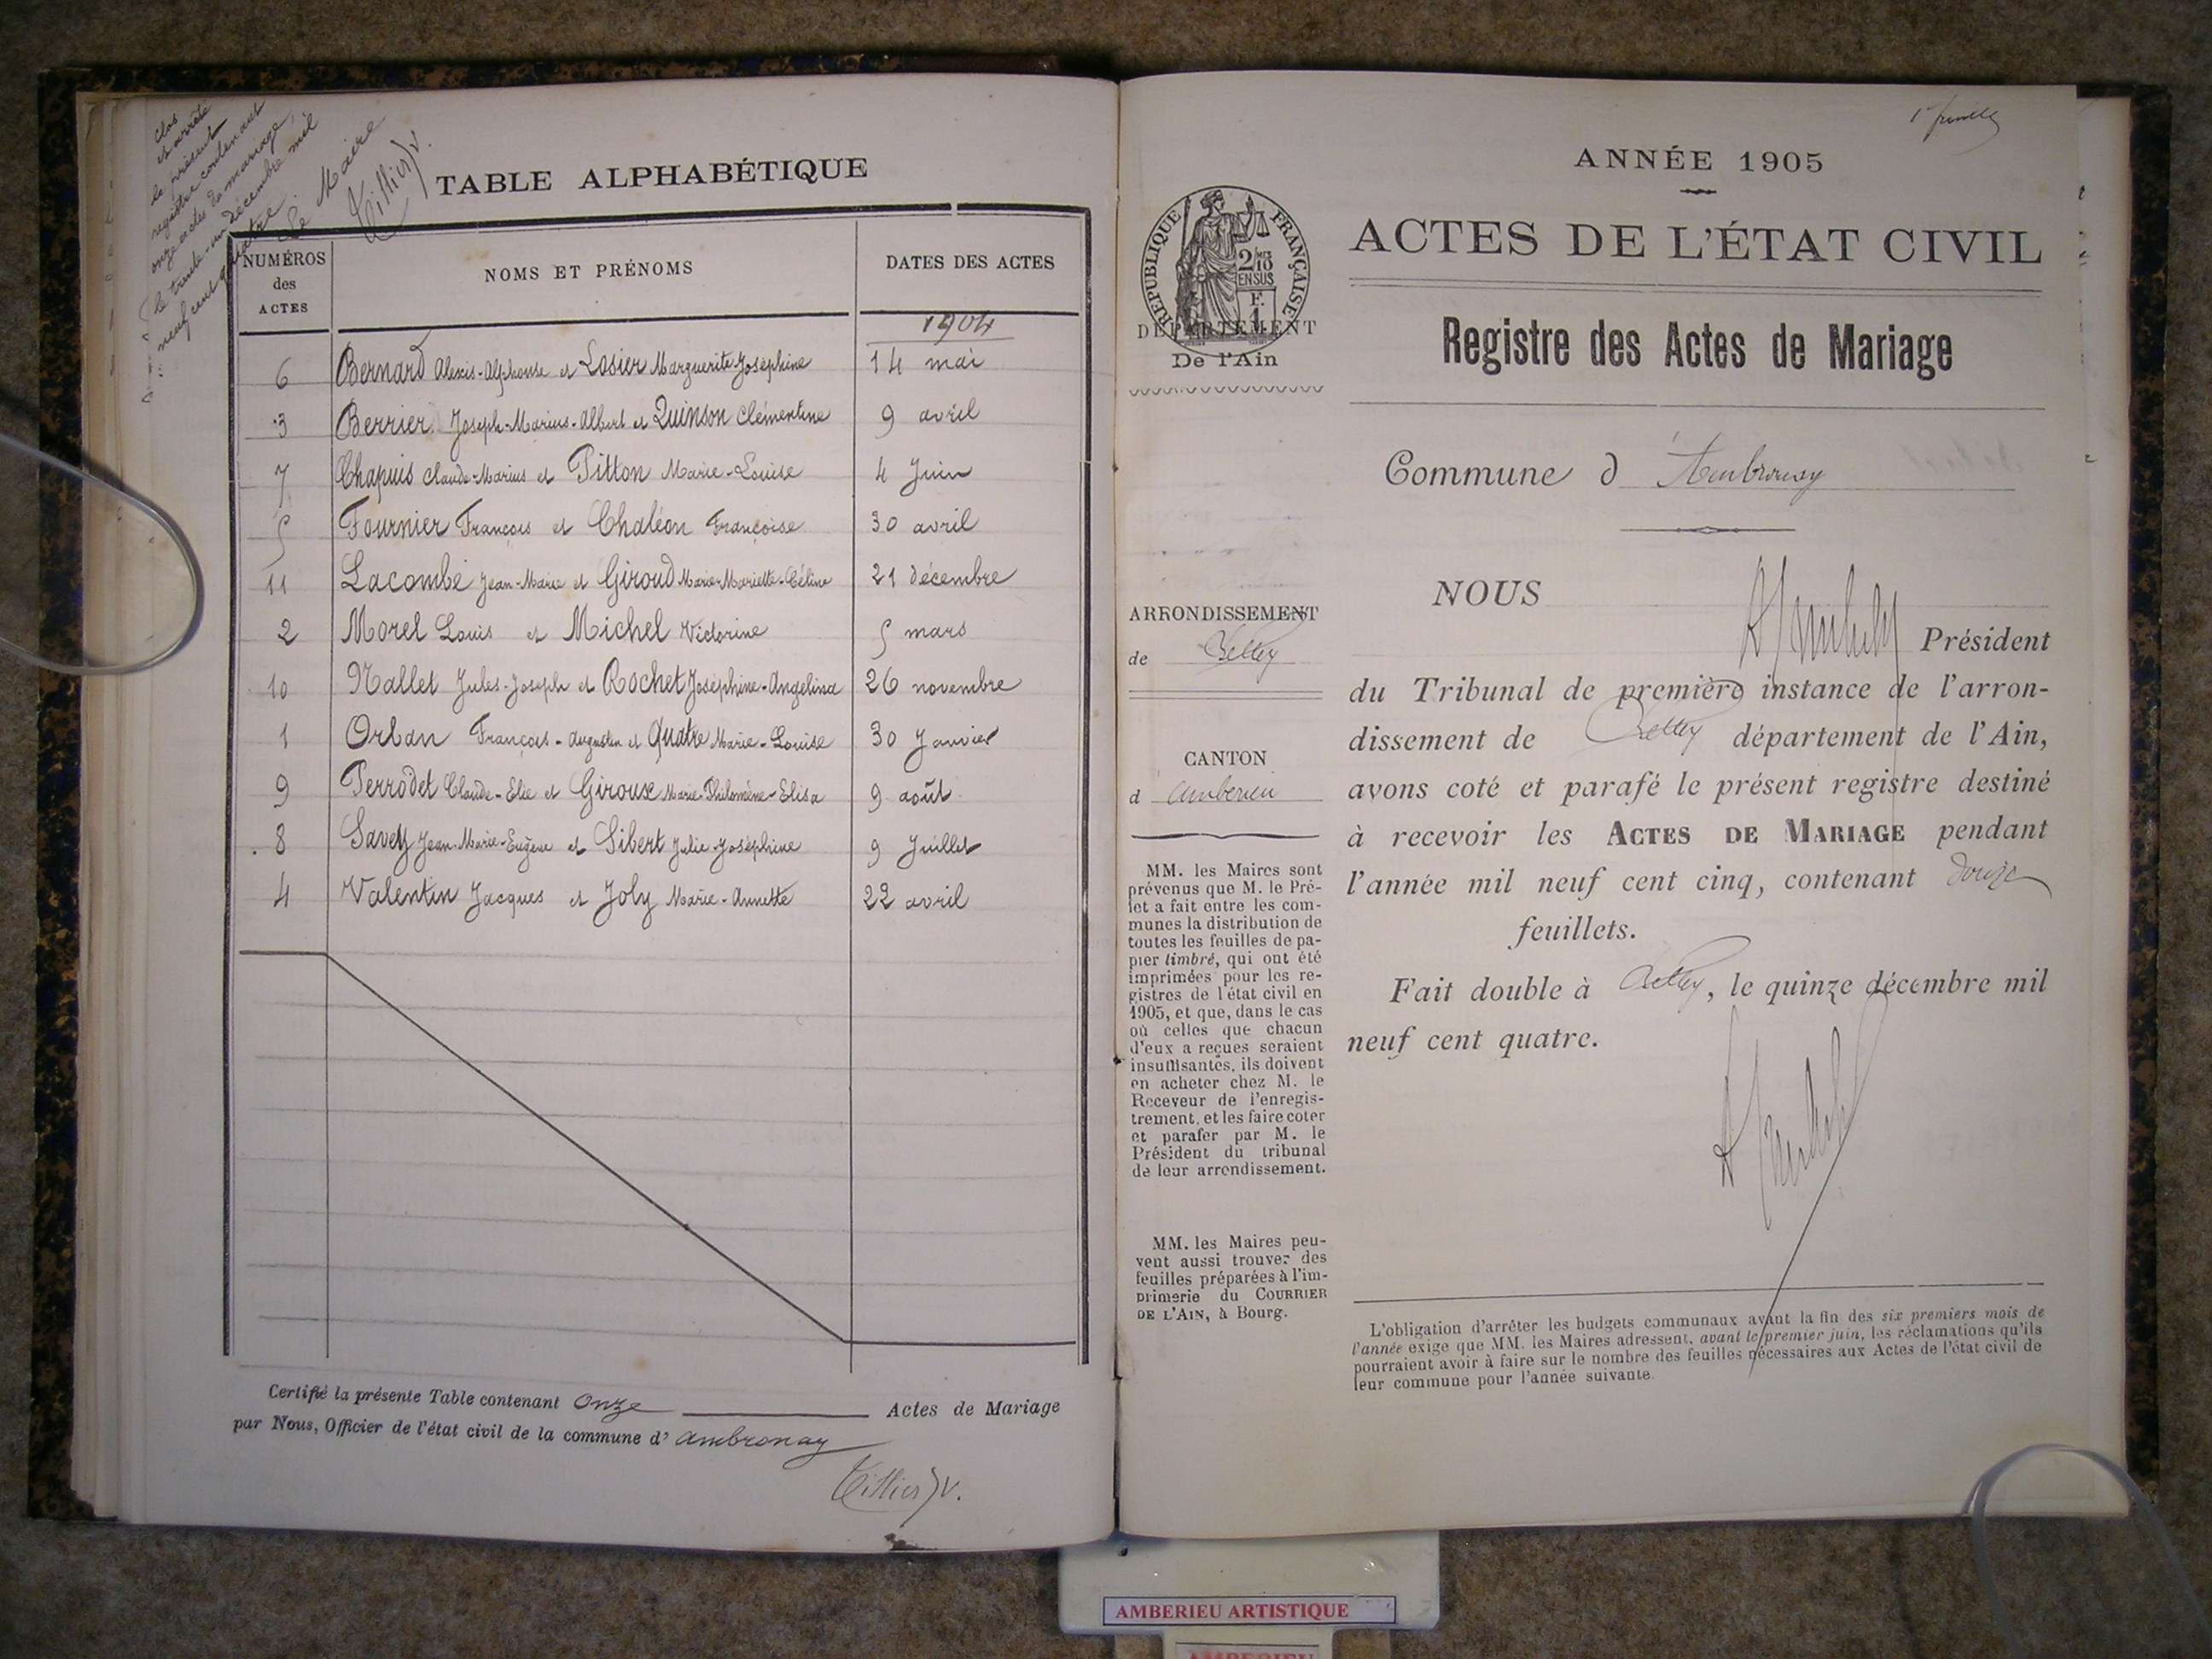 clos
et arrêté
le présent
registre contenant
onze actes de mariage,
le trente-un décembre mil
neuf cent quatre.
Le Maire
Tillier JV.
TABLE ALPHABÉTIQUE
NUMÉROS
des
ACTES
NOMS ET PRÉNOMS
DATES DES ACTES
1904
6 Bernard Alexis-Alphonse et Losier Marguerite-Joséphine 14 mai
3 Berrier Joseph-Marius-Albert et Quinson Clémentine 9 avril
7 Chapuis Claude-Marius et Pitton Marie-Louise 4 Juin
5 Fournier François et Chaléon Françoise 30 avril
11 Lacombe Jean-Marie et Giroud Marie-Mariette-Céline 21 décembre
2 Morel Louis et Michel Victorine 5 mars
10 Nallet Jules-Joseph et Rochet Joséphine-Angelina 26 novembre
1 Orban François-Augustin et Quatre Marie-Louise 30 Janvier
9 Perrodet Claude-Elie et Giroux Marie-Philomène-Elisa 9 août
8 Savey Jean-Marie-Eugène et Sibert Julie-Joséphine 9 Juillet
4 Valentin Jacques et Joly Marie-Annette 22 avril
Certifié la présente Table contenant Onze Actes de Mariage
par Nous, Officier de l'état civil de la commune d' Ambronay
Tillier JV.
ANNÉE 1905
ACTES DE L'ÉTAT CIVIL
REPUBLIQUE FRANÇAISE
2/10
EN SUS
F.
1
DÉPARTEMENT
De l'Ain
Registre des Actes de Mariage
Commune d Ambronay
ARRONDISSEMENT
de Belley
CANTON
d Ambérieu
MM. les Maires sont
prévenus que M. le Pré-
fet a fait entre les com-
munes la distribution de
toutes les feuilles de pa-
pier timbré, qui ont été
imprimées pour les re-
gistres de l'état civil en
1905, et que, dans le cas
où celles que chacun
d'eux a reçues seraient
insuffisantes, ils doivent
en acheter chez M. le
Receveur de l'enregis-
trement, et les faire coter
et parafer par M. le
Président du tribunal
de leur arrondissement.
MM. les Maires peu-
vent aussi trouver des
feuilles préparées à l'im-
primerie du COURRIER
DE L'AIN, à Bourg.
NOUS
Président
du Tribunal de première instance de l'arron-
dissement de Belley département de l'Ain,
avons coté et parafé le présent registre destiné
à recevoir les ACTES DE MARIAGE pendant
l'année mil neuf cent cinq, contenant douze
feuillets.
Fait double à Belley, le quinze décembre mil
neuf cent quatre.
L'obligation d'arrêter les budgets communaux avant la fin des six premiers mois de
l'année exige que MM. les Maires adressent, avant le premier juin, les réclamations qu'ils
pourraient avoir à faire sur le nombre des feuilles nécessaires aux Actes de l'état civil de
leur commune pour l'année suivante.
AMBERIEU ARTISTIQUE
AMBERIEU